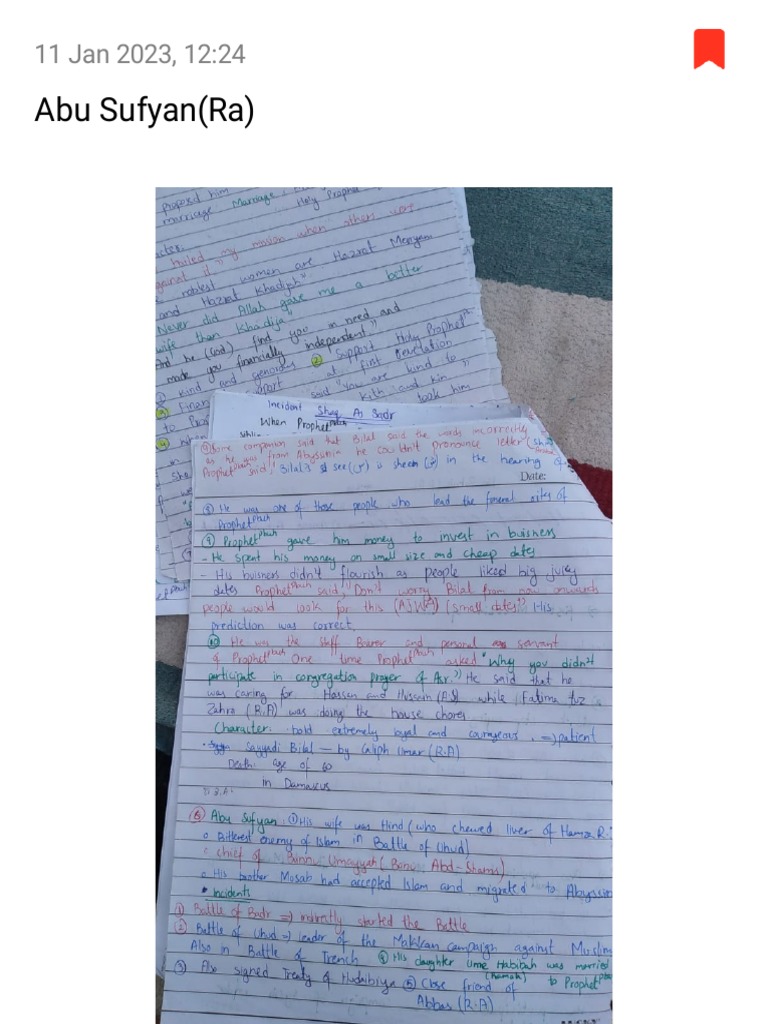 11 Jan 2023, 12:24
Abu Sufyan(Ra)
proposed him
marriage Marriage Holy Prophet
my mission when others were
against it"
noblest women are Hazrat Meryam
and Hazrat Khadijah".
"Never did Allah gave me a better
wife than Khadija"
And he (God) find you in need and
made you financially independent"
kind and generous ② Support Holy Prophet
at first revelation
said "You are kind to
to kith and kin
took him
Incident Shaq As Sadr
When Prophet pbuh
④ Some companion said that Bilal said the words incorrectly
as he was from Abysinia he couldn't pronounce letter (sh
Prophet pbuh said, "Bilal's see (س) is sheen (ش) in the hearing of
Date:
⑧ He was one of those people who lead the funeral rites of
Prophet pbuh
⑨ Prophet pbuh gave him money to invest in buisness
- He spent his money on small size and cheap dates
- His buisness didn't flourish as people liked big juicy
dates Prophet pbuh said, "Don't worry Bilal from now onwards
people would look for this (AJWA) (small dates)" His
prediction was correct.
⑩ He was the Staff Bearer and personal servant
of Prophet pbuh One time Prophet pbuh asked "Why you didn't
participate in congregation prayer of Asr." He said that he
was caring for Hassan and Hussein (R.A) while Fatima tuz
Zahra (R.A) was doing the house chores
Character: bold extremely loyal and courageous, => patient
Sayyadi Bilal — by Caliph Umar (R.A)
Death: age of 60
in Damascus
⑥ Abu Sufyan: ① His wife was Hind (who chewed liver of Hamza R.
o Bitterest enemy of Islam in Battle of Uhud)
o chief of Banu Umayyah (Banu Abd-Shams)
o His brother Mosab had accepted Islam and migrated to Abyssin
• Incidents
① Battle of Badr => indirectly started the Battle
② Battle of Uhud => leader of the Makkan campaign against Muslim
Also in Battle of Trench ④ His daughter Ume Habibah was married
(Ramlah) to Prophet pbuh
③ Also signed Treaty of Hudaibiya ⑤ Close friend of
Abbas (R.A)